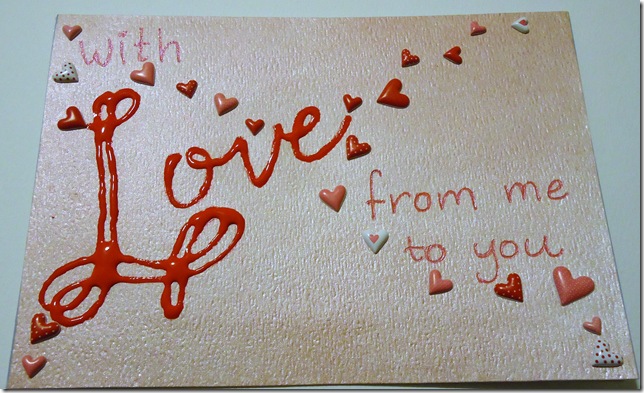 with
Love
from me
to you